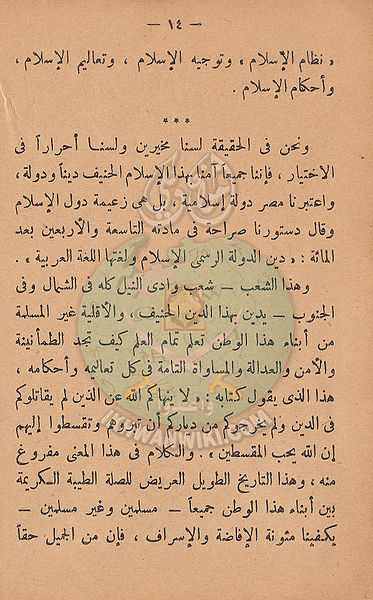 — ١٤ —
« نظام الإسلام » وتوجيه الإسلام ، وتعاليم الإسلام ،
وأحكام الإسلام .
* * *
ونحن فى الحقيقة لسنا مخيرين ولسنا أحراراً فى
الاختيار ، فإننا جميعاً آمنا بهذا الإسلام الحنيف ديناً ودولة ،
واعتبرنا مصر دولة إسلامية ، بل هى زعيمة دول الإسلام
وقال دستورنا صراحة فى مادته التاسعة والأربعين بعد
المائة : « دين الدولة الرسمى الإسلام ولغتها اللغة العربية » .
وهذا الشعب — شعب وادى النيل كله فى الشمال وفى
الجنوب — يدين بهذا الدين الحنيف ، والأقلية غير المسلمة
من أبناء هذا الوطن تعلم تمام العلم كيف تجد الطمأنينة
والأمن والعدالة والمساواة التامة فى كل تعاليمه وأحكامه ،
هذا الذى يقول كتابه : « لا ينهاكم الله عن الذين لم يقاتلوكم
فى الدين ولم يخرجوكم من دياركم أن تبروهم وتقسطوا إليهم
إن الله يحب المقسطين » . والكلام فى هذا المعنى مفروغ
منه ، وهذا التاريخ الطويل العريض للصلة الطيبة الكريمة
بين أبناء هذا الوطن جميعاً — مسلمين وغير مسلمين —
يكفينا مئونة الإفاضة والإسراف ، فإن من الجميل حقاً
IKHWANWIKI.COM